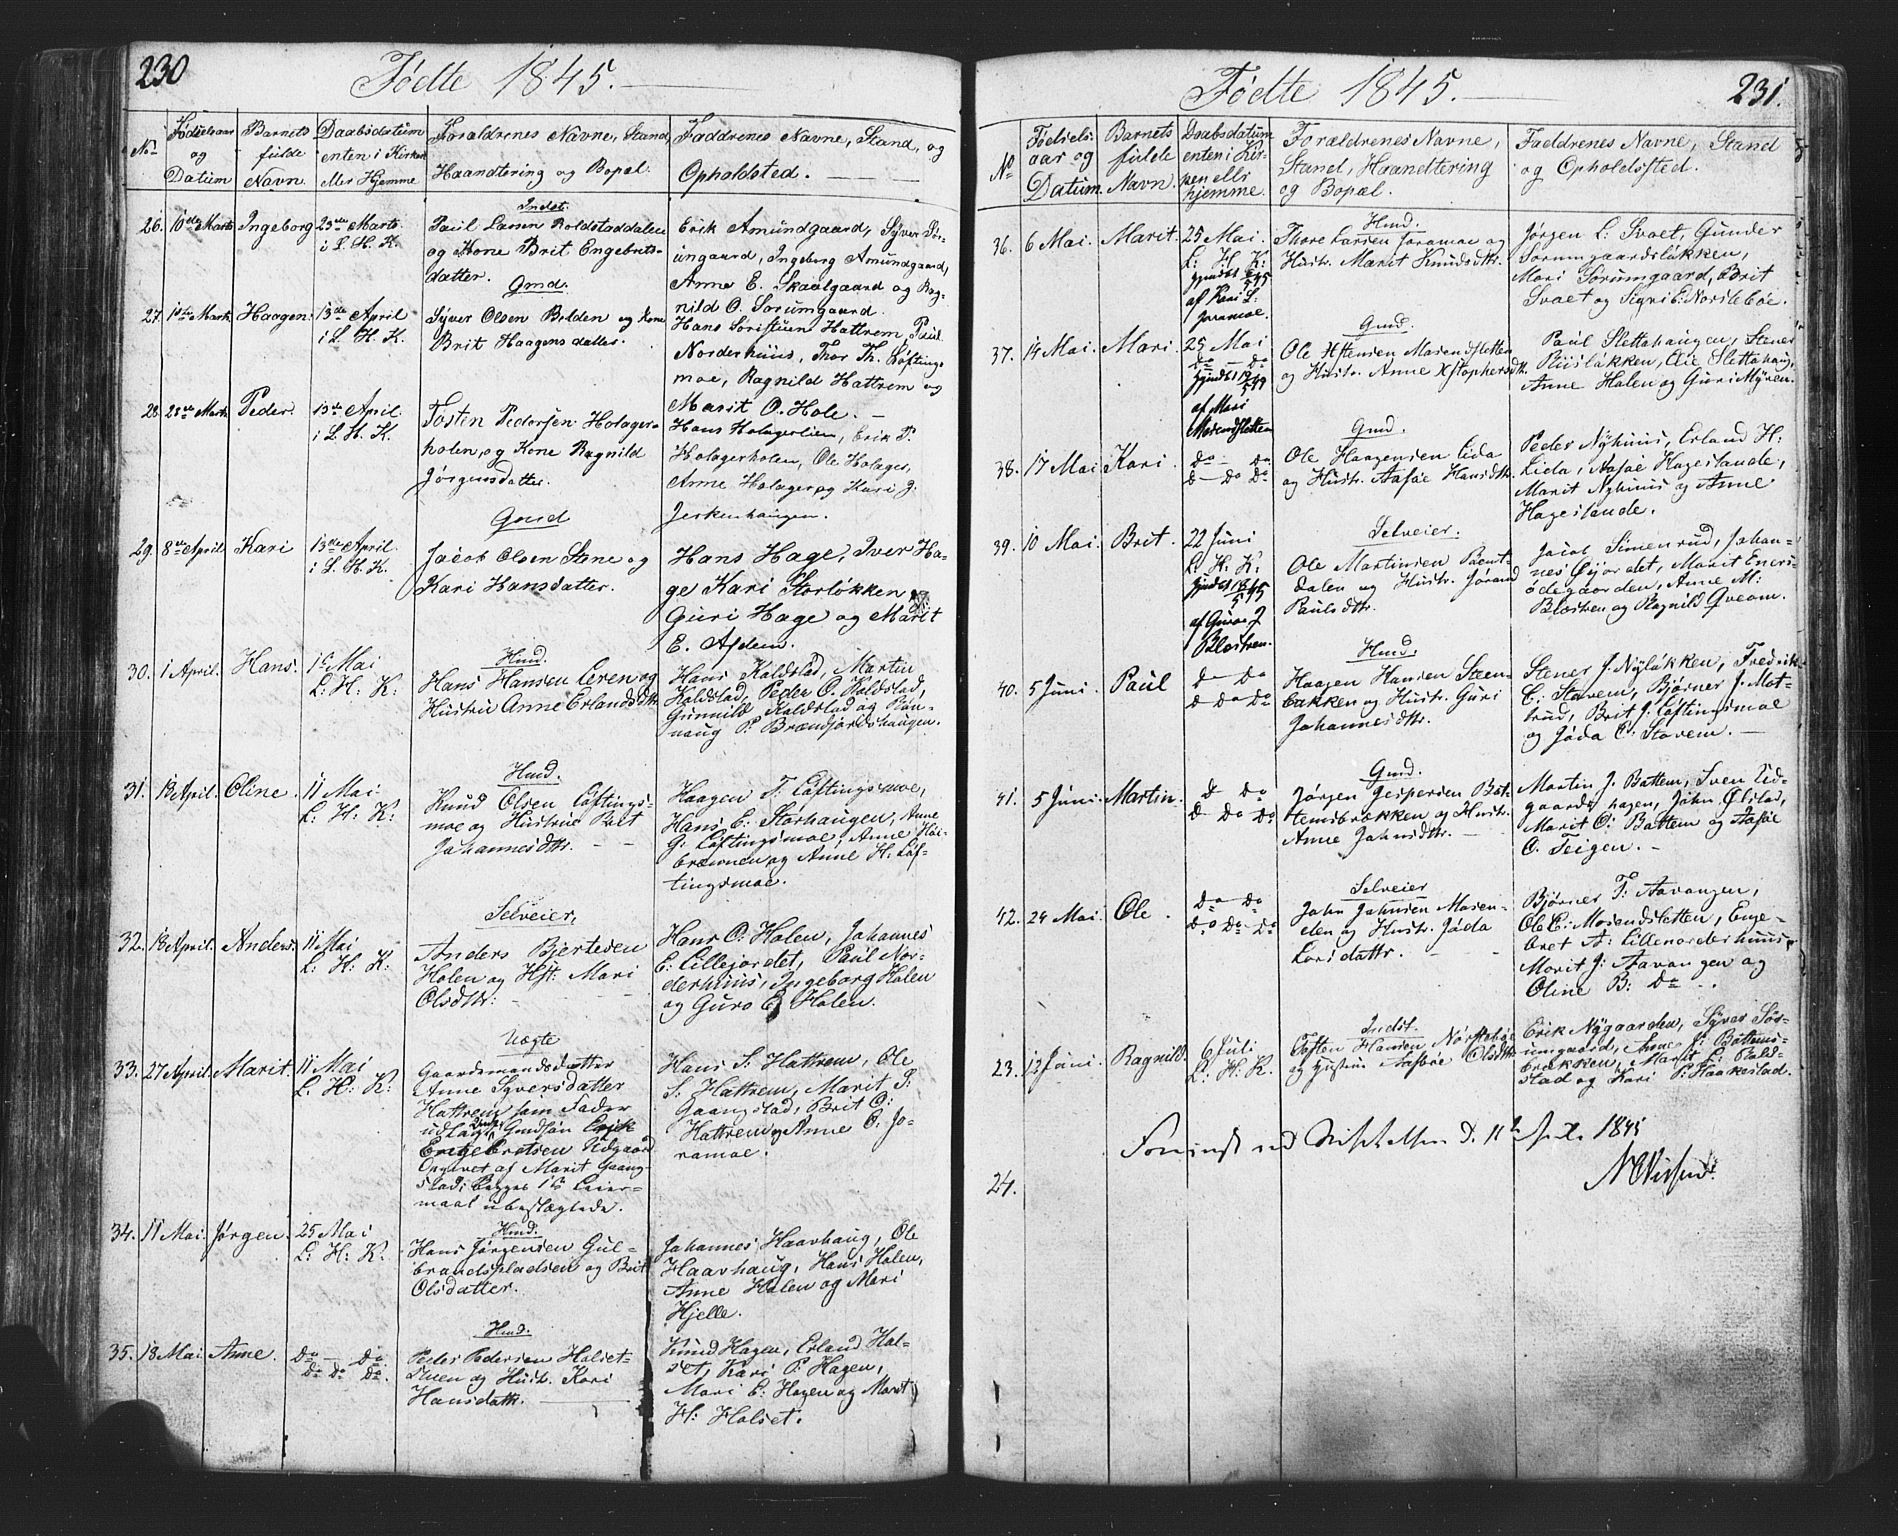 230
Fødte 1845.
No
Fødselsaar og Datum
Barnets fulde Navn.
Daabsdatum enten i Kirken eller Hjemme
Forældrenes Navne, Stand, Haandtering og Bopæl.
Faddrenes Navne, Stand, og Opholdsted.
26. 10de Marts Ingeborg 23de Marts
i L. H. K.
Indst.
Paul Larsen Roldstaddalen
og Kone Brit Engebrets-
datter.
Erik Amundgaard, Syver Sør-
umgaard, Ingeborg Amundgaard,
Anne E. Skaalgaard og Rag-
nild O. Sorumgaard.
27. 1ste Marts Haagen. 13de April
i L. H. K.
Gmd.
Syver Olsen Bilden og Kone
Brit Haagensdatter.
Hans Hattrem, Paul
Norderhuus, Thor Th. Løftings-
moe, Ragnild Hattrem og
Marit O. Hole.
28. 23de Marts Peder. 13de April.
i L. H. K.
Tosten Pedersen Holager-
holen, og Kone Ragnild
Jørgensdatter.
Hans Holagerlien, Erik P.
Holagerholen, Ole Holager,
Anne Holager og Kari J.
Jerkenhaugen.
29. 8de April Kari 13de April.
i L. H. K.
Gmd
Jacob Olsen Stene og
Kari Hansdatter.
Hans Hage, Iver Ha-
ge Kari Storløkken
Guri Hage og Marit
E. Afdem.
30. 1 April. Hans. 1ste Mai
L: H: K:
Hmd.
Hans Hansen Leren og
Hustru Anne Erlandsdttr
Hans Koldstad, Martin
Koldstad, Peder O. Koldstad,
Gunnild Koldstad og Røn-
naug P. Brændjordshaugen.
31. 13 April. Oline. 11 Mai
L: H: K:
Hmd.
Knud Olsen Løftings-
moe og Hustrue Brit
Johannesdttr.
Haagen T. Løftingsmoe,
Hans E: Storhaugen, Anne
G. Løftingsmoe, Anne Hau-
brænnen og Anne H. Løf-
tingsmoe.
32. 18 April. Anders. 11 Mai
L: H: K:
Selveier,
Anders Bjertesen
Holen og Hst. Mari
Olsdttr:
Hans O. Holen, Johannes
E: Lillejordet, Paul Nor-
derhuus, Ingeborg Holen
og Guro E. Holen.
33. 27 April. Marit. 11 Mai
L: H: K:
Uægte
Gaardsmandsdatter
Anne Syversdatter
Hattrem som Fader
udlagt Ungk. Gmdsøn Erik
Engebretsen Udgaard
Opgivet af Marit Gaang-
stad; Begges 1ste Leier-
maal ubeslægtede.
Hans S. Hattrem, Ole
S. Hattrem, Marit P.
Gaangstad, Brit O:
Hattrem og Anne O. Jo-
ramoe.
34. 11 Mai. Jørgen. 25 Mai
L: H: K:
Hmd.
Hans Jørgensen Gul-
brandspladsen og Brit
Olsdatter.
Johannes Haavhaug, Ole
Haavhaug, Hans Holen,
Anne Holen og Mari
Hjelle.
35. 18 Mai. Anne. Do — Do
Do Do Do.
Hmd.
Peder Pedersen Holset-
tuen og Hustr. Kari
Hansdattr.
Knud Hagen, Erland Hol-
set, Kari P: Hagen,
Mari E: Hagen og Marit
H: Holset.
231.
Fødte 1845.
No
Fødselsaar og Datum.
Barnets fulde Navn.
Daabsdatum enten i Kirken eller hjemme.
Forældrenes Navne, Stand, Haandtering og Bopæl.
Faddrenes Navne, Stand og Opholdssted.
36. 6 Mai. Marit. 25 Mai.
L: H. K:
hjmdbt
af Kari L:
Joramoe.
Hmd.
Thore Larsen Joramoe og
Hustr. Marit Knudsdttr.
Jørgen L: Svaet, Gunder
Sorumgaardsløkken,
Mari Sorumgaard, Brit
Svaet og Sigri E: Norstebøe.
37. 14 Mai. Mari. 25 Mai
Do — Do
hjmdbt
af Mari
Mosendsletten
Gmd.
Ole Estensen Mosendsletten
og Hustr. Anne Xstophersdttr.
Paul Slettahaugen, Stener
Riisløkken, Elie Slettahaug,
Anne Holen og Guri Myren.
38. 17 Mai Kari. Do — Do
D — Do Do
Gmd.
Ole Haagensen Lida
og Hustr. Aasøe Hansdttr.
Peder Nyhuus, Erland H:
Lida, Aasøe Hageslande,
Marit Nyhuus og Anne
Hageslande.
39. 10 Mai. Brit. 22 Juni
L: H: K:
hjmdbt
af Guroe J
Blæstren.
Selveier.
Ole Martinsen
dalen og Hustr. Jørand
Paulsdttr.
Jacob Simenrud, Johan-
nes Øijordet, Marit Eneri-
ødegaarden, Anne M:
Blæstren og Ragnild Qveom.
40. 5 Juni. Paul D — Do
D Do Do
Hmd.
Haagen Hansen Steen-
bakken og Hustr. Guri
Johannesdttr.
Stener J. Nyløkken, Fredrik
E: Stavem, Bjørner J. Mot-
trud, Brit J. Løftingsmoe
og Jøda E: Stavem. —
41. 5 Juni. Martin. D Do
D Do Do
Gmd.
Jørgen Jespersen Bat-
temsbrækken og Hustr.
Anne Johnsdttr.
Martin J. Battem, Sven Ud-
gaardshagen, John Ølstad,
Marit O: Battem og Aasøe
O. Teigen. —
42. 24 Mai. Ole. Do Do
Do Do Do
Selveier
John Johnsen Mosen-
den og Hustr. Jøda
Larsdattr.
Bjørner T: Aavangen,
Ole E: Mosendsletten, Enge-
bret A: Lillenorderhuus,
Marit J: Aavangen og
Oline B: Do.
23. 12 Juni. Ragnild. 6 Juli
L: H. K.
Indst.
Tosten Hansen Nørstebøe
og Hustrue Aasøe Olsdttr
Erik Nygaarden, Syver Sør-
umgaard, Anne J: Battems-
brækken, Marit L: Rold-
stad og Kari P: Haakestad.
24.
1845